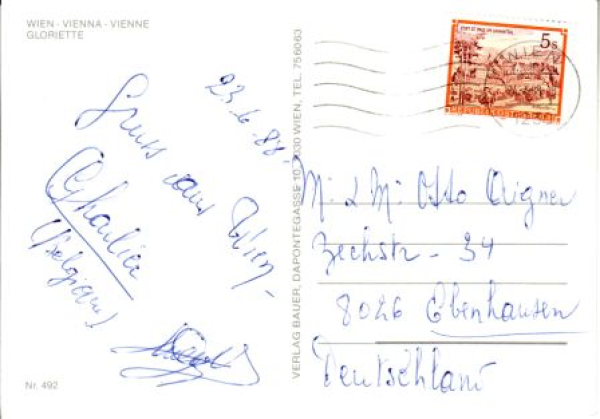 WIEN - VIENNA - VIENNE
GLORIETTE
23.6.88.
Gruss aus Wien
Gharlier
(Belgium)
Nr. 492
VERLAG BAUER, DAPONTEGASSE 10, 1030 WIEN, TEL. 756063
5s
REPUBLIK ÖSTERREICH
WIEN
M. & M. Otto Aigner
Zechstr - 34
8026 Ebenhausen
Deutschland